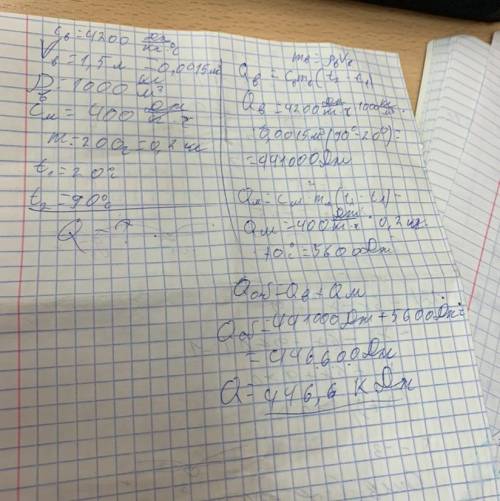 c_в = 4200 Дж/кг·°C
V_в = 1,5 л = 0,0015 м³
ρ_в = 1000 кг/м³
c_м = 400 Дж/кг·°C
m = 200 г = 0,2 кг
t₁ = 20°C
t₂ = 90°C
Q - ?
m_в = ρ_в V_в
Q_в = c_в m_в (t₂ - t₁)
Q_в = 4200 Дж/кг·°C · 1000 кг/м³ ·
0,0015 м³ (90° - 20°) =
= 441000 Дж
Q_м = c_м · m_м (t₂ - t₁) =
Q_м = 400 Дж/кг·°C · 0,2 кг ·
70°C = 5600 Дж
Q_об = Q_в + Q_м
Q_об = 441000 Дж + 5600 Дж
= 446600 Дж
Q = 446,6 кДж